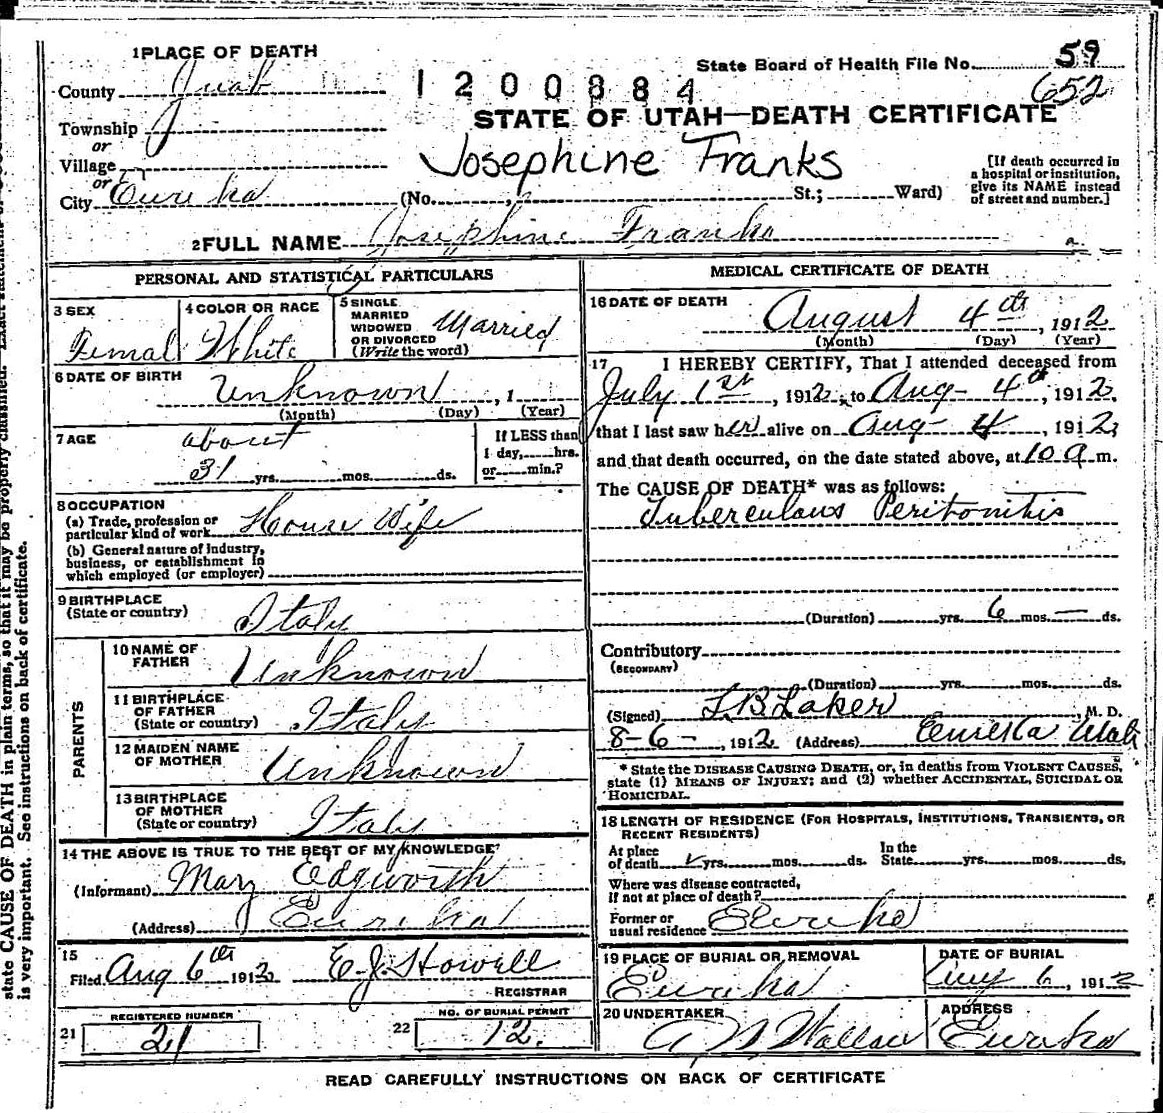 1 PLACE OF DEATH
County Juab
1200884
State Board of Health File No. 59
652
STATE OF UTAH—DEATH CERTIFICATE
Township
or
Village
or
City Eureka
Josephine Franks
(No. St.; Ward)
[If death occurred in
a hospital or institution,
give its NAME instead
of street and number.]
2 FULL NAME Josephine Franks
PERSONAL AND STATISTICAL PARTICULARS
3 SEX
Femal
4 COLOR OR RACE
White
5 SINGLE
MARRIED
WIDOWED
OR DIVORCED
(Write the word)
Married
6 DATE OF BIRTH
Unknown , 1
(Month) (Day) (Year)
7 AGE
about
31 yrs. mos. ds.
If LESS than
1 day, hrs.
or min.?
8 OCCUPATION
(a) Trade, profession or
particular kind of work House Wife
(b) General nature of industry,
business, or establishment in
which employed (or employer)
9 BIRTHPLACE
(State or country) Italy
PARENTS
10 NAME OF
FATHER Unknown
11 BIRTHPLACE
OF FATHER
(State or country) Italy
12 MAIDEN NAME
OF MOTHER Unknown
13 BIRTHPLACE
OF MOTHER
(State or country) Italy
14 THE ABOVE IS TRUE TO THE BEST OF MY KNOWLEDGE
(Informant) Mary Edgworth
(Address) Eureka
15
Filed Aug 6th 1912 E. J. Howell
REGISTRAR
REGISTERED NUMBER
21 21
NO. OF BURIAL PERMIT
22 12.
MEDICAL CERTIFICATE OF DEATH
16 DATE OF DEATH
August 4th, 1912
(Month) (Day) (Year)
17 I HEREBY CERTIFY, That I attended deceased from
July 1st, 1912, to Aug- 4th, 1912,
that I last saw her alive on Aug- 4, 1912;
and that death occurred, on the date stated above, at 10 a m.
The CAUSE OF DEATH* was as follows:
Tuberculous Peritonitis
(Duration) yrs. 6 mos. — ds.
Contributory
(SECONDARY)
(Duration) yrs. mos. ds.
(Signed) Laker, M. D.
8-6-, 1912 (Address) Eureka Utah
* State the DISEASE CAUSING DEATH, or, in deaths from VIOLENT CAUSES,
state (1) MEANS OF INJURY; and (2) whether ACCIDENTAL, SUICIDAL OR
HOMICIDAL.
18 LENGTH OF RESIDENCE (FOR HOSPITALS, INSTITUTIONS, TRANSIENTS, OR
RECENT RESIDENTS)
At place
of death yrs. mos. ds.
In the
State yrs. mos. ds.
Where was disease contracted,
If not at place of death?
Former or
usual residence Eureka
19 PLACE OF BURIAL OR REMOVAL
Eureka
DATE OF BURIAL
Aug 6, 1912
20 UNDERTAKER
Wallace
ADDRESS
Eureka
READ CAREFULLY INSTRUCTIONS ON BACK OF CERTIFICATE
state CAUSE OF DEATH in plain terms, so that it may be properly classified.
is very important. See instructions on back of certificate.